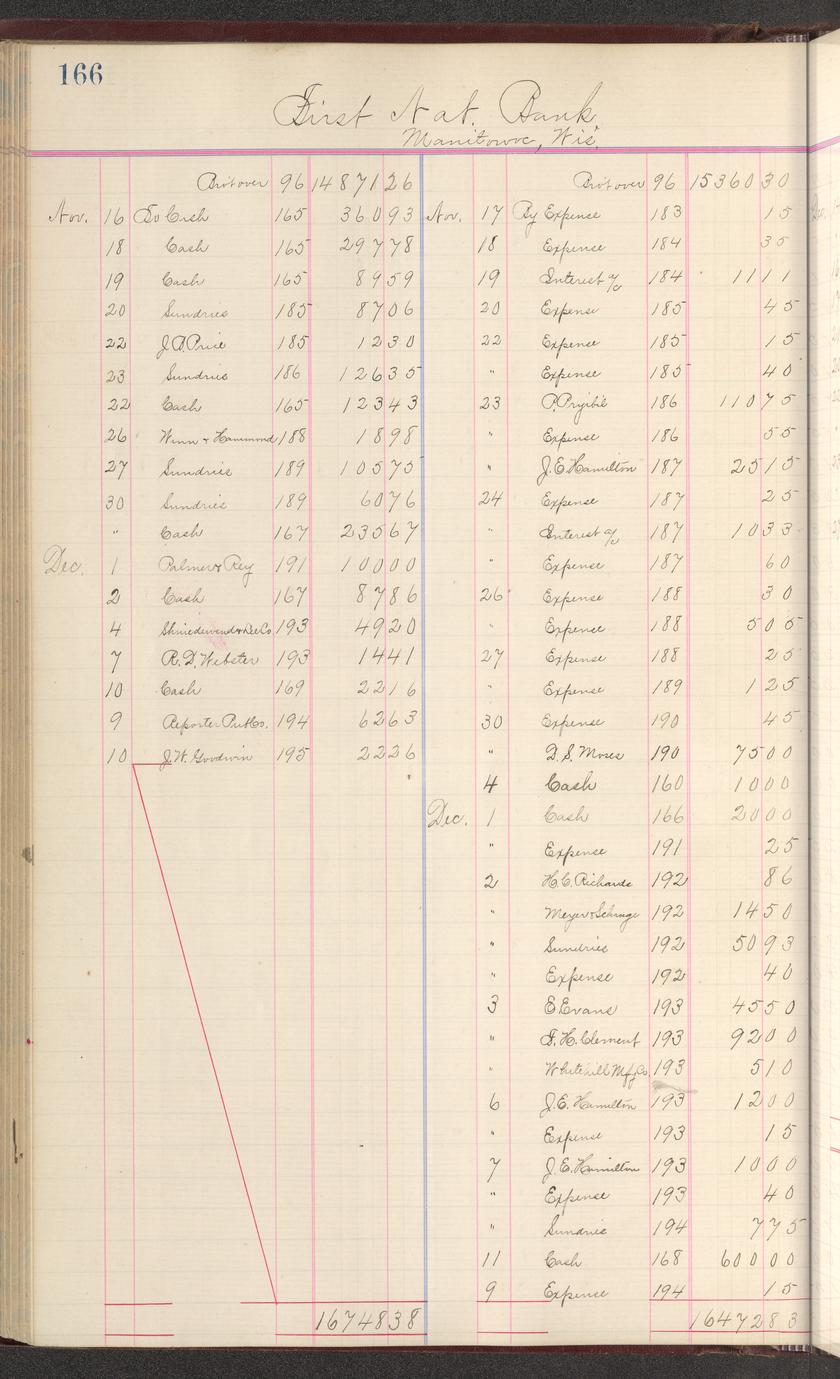 166
First Nat. Bank
Manitowoc, Wis.
Bro't over 96 14871 26
Nov. 16 To Cash 165 360 93
18 Cash 165 297 78
19 Cash 165 89 59
20 Sundries 185 87 06
22 J.A. Price 185 12 30
23 Sundries 186 126 35
22 Cash 165 123 43
26 Winn & Hammond 188 18 98
27 Sundries 189 105 75
30 Sundries 189 60 76
" Cash 167 235 67
Dec. 1 Palmer & Rey 191 100 00
2 Cash 167 87 86
4 & Lee Co 193 49 20
7 R.D. Webster 193 14 41
10 Cash 169 22 16
9 Reporter Pub Co. 194 62 63
10 J.W. Goodwin 195 22 26
16748 38
Bro't over 96 15360 30
Nov. 17 By Expense 183 15
18 Expense 184 35
19 Interest a/c 184 11 11
20 Expense 185 45
22 Expense 185 15
" Expense 185 40
23 P. Pryibil 186 110 75
" Expense 186 55
" J.E. Hamilton 187 25 15
24 Expense 187 25
" Interest a/c 187 10 33
" Expense 187 60
26 Expense 188 30
" Expense 188 5 05
27 Expense 188 25
" Expense 189 1 25
30 Expense 190 45
" D.S. Moses 190 75 00
4 Cash 160 10 00
Dec. 1 Cash 166 20 00
" Expense 191 25
2 H.C. Richards 192 86
" Meyer & Schuge 192 14 50
" Sundries 192 50 93
" Expense 192 40
3 E Evans 193 45 50
" F.H. Clement 193 92 00
" Whitehill Mfg Co. 193 5 10
6 J.E. Hamilton 193 12 00
" Expense 193 15
7 J.E. Hamilton 193 10 00
" Expense 193 40
" Sundries 194 7 75
11 Cash 168 600 00
9 Expense 194 15
16472 83